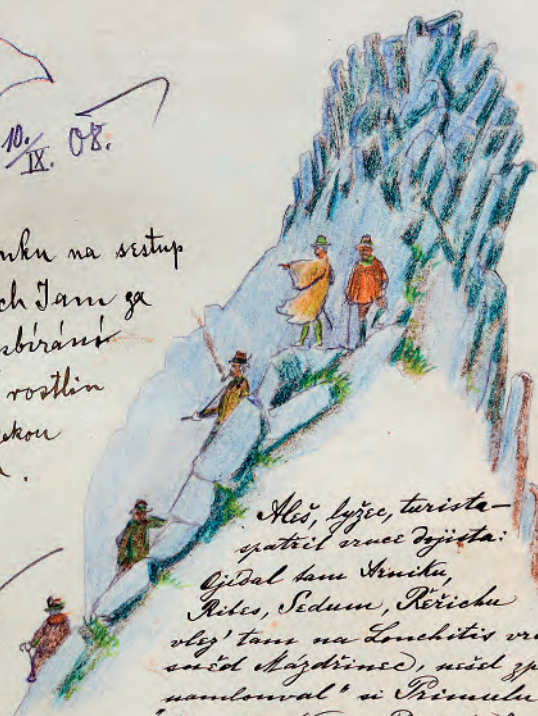 10./IX. 08.
nku na sestup
ch Jam za
sbírání
rostlin
ckou
Aleš, lyžec, turista—
spatřil srnce dojista:
Ojídal tam Arniku,
Ribes, Sedum, Řeřichu
vlez' tam na Lonchitis
sněd Mázdřinec, nešel
namlouval" si Primulu